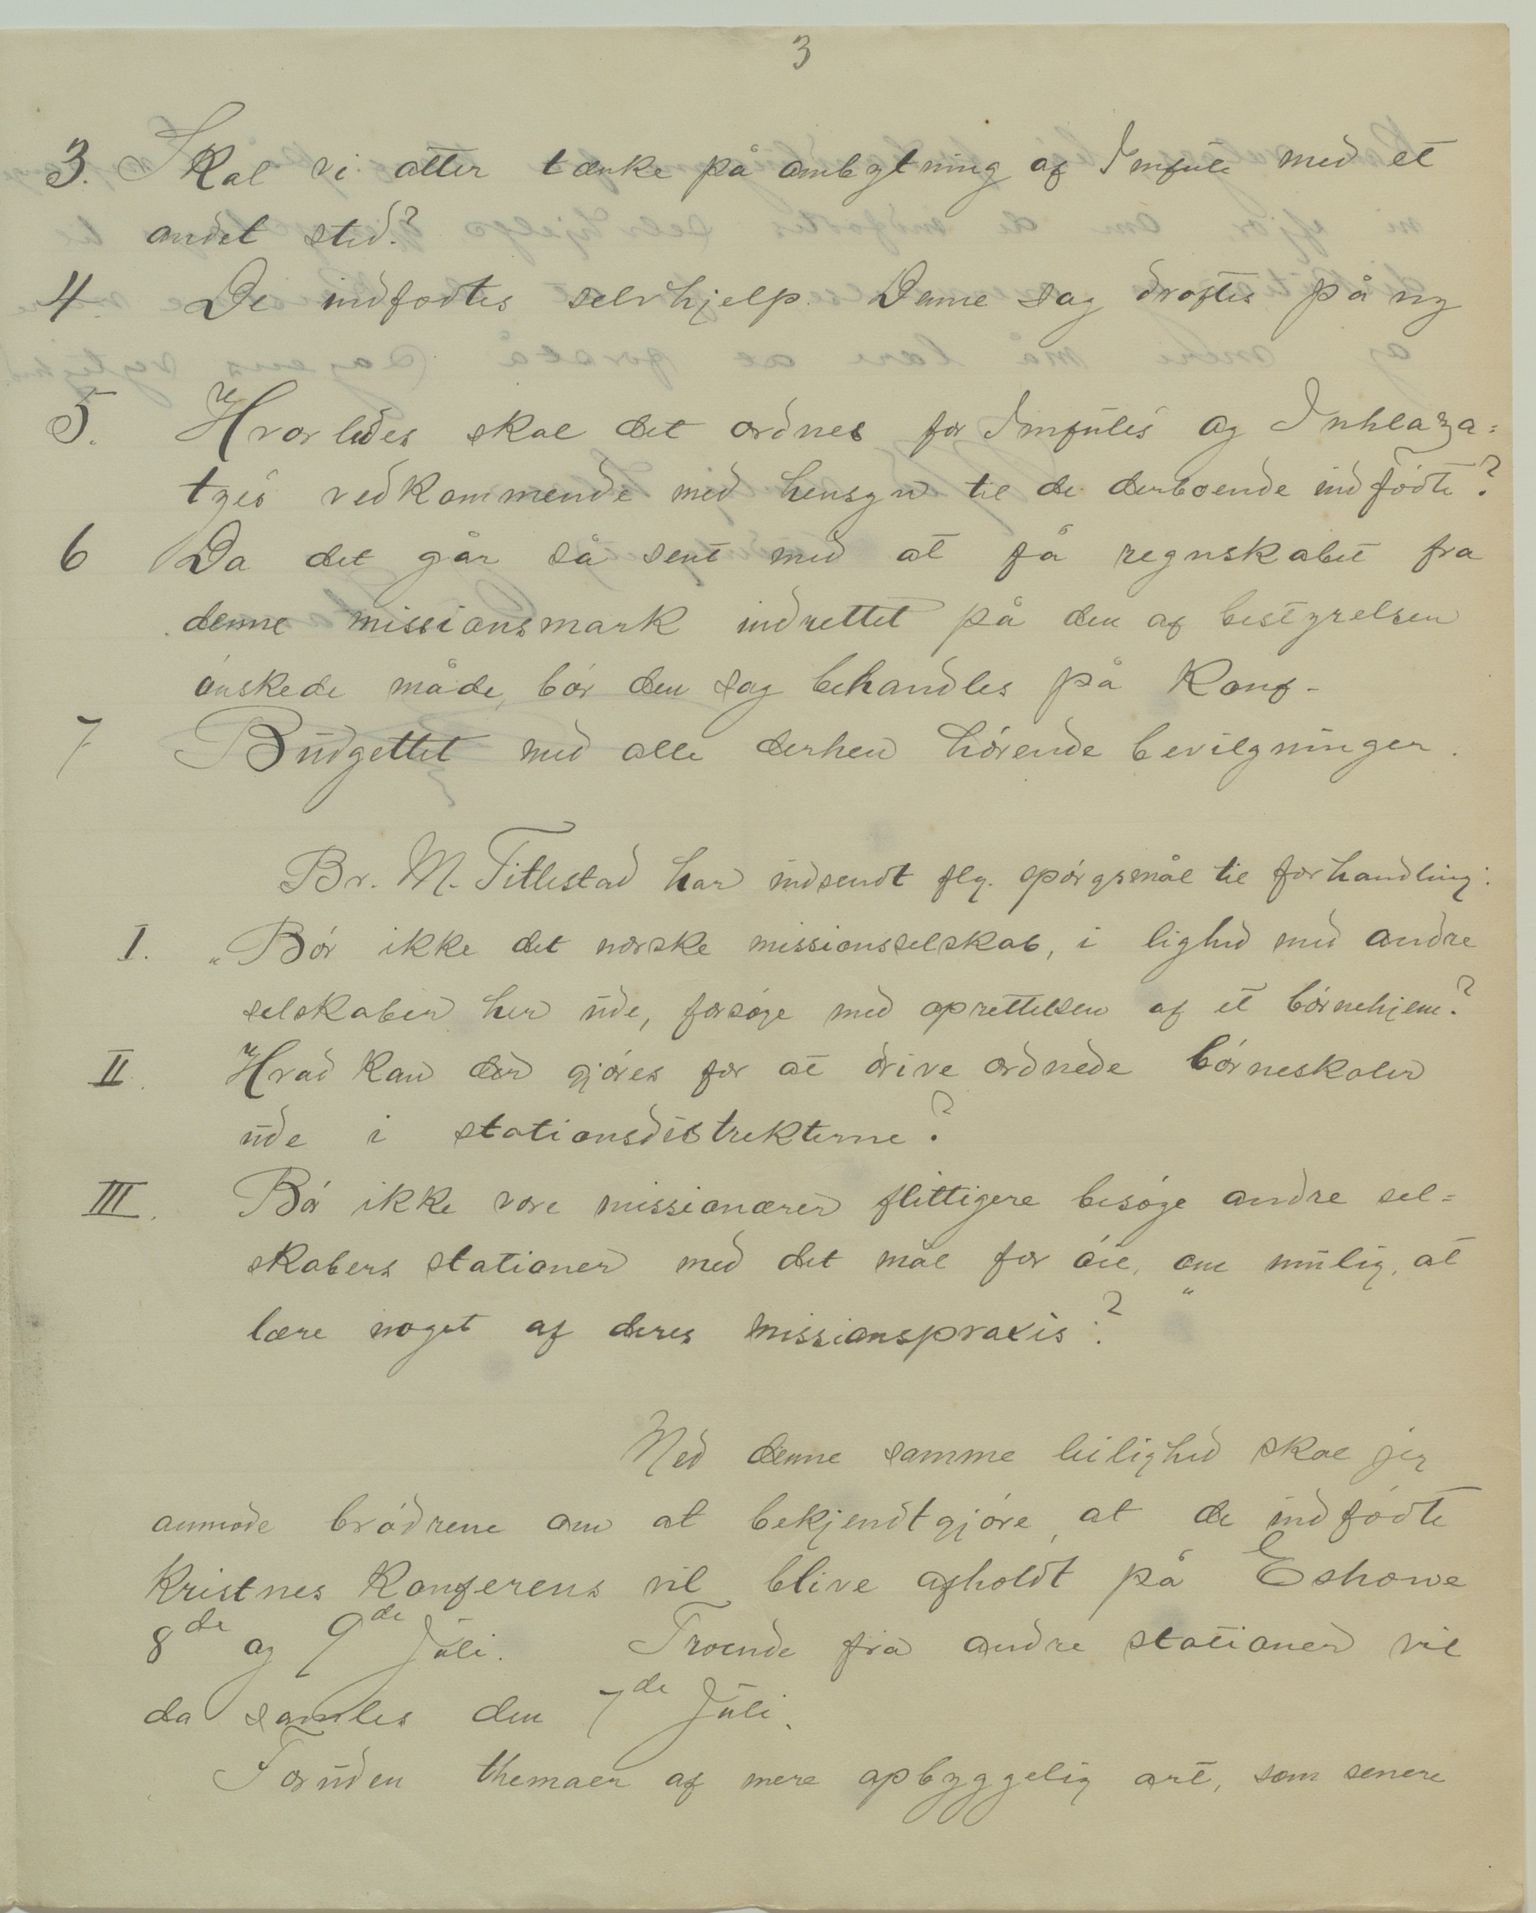 3
3. Skal vi atter tænke på ombytning af Imfule med et
andet sted?
4. De indfødtes selvhjelp. Denne sag drøftes på ny
5. Hvorledes skal det ordnes for Imfules og Inhlaza=
tyes vedkommende med hensyn til de derboende indfødte?
6 Da det går så sent med at få regnskabet fra
denne missionsmark indrettet på den af bestyrelsen
ønskede måde, bør den sag behandles på Konf-
7 Budgettet med alle derhen hørende bevilgninger.
Br. M. Titlestad har indsendt flg. spørgsmål til forhandling:
I. „Bør ikke det norske missionsselskab, i lighed med andre
selskaber her ude, forsøge med oprettelsen af et børnehjem?
II. Hvad kan der gjøres for at drive ordnede børneskoler
ude i stationsdistrikterne?
III. Bør ikke vore missionærer flittigere besøge andre sel=
skabers stationer med det mål for øie, om mulig, at
lære noget af deres missionspraxis?"
Med denne samme leilighed skal jeg
anmode brødrene om at bekjendtgjøre, at de indfødte
kristnes Konferens vil blive afholdt på Eshowe
8de og 9de Juli. Troende fra andre stationer vil
da samles den 7de Juli.
Foruden themaer af mere opbyggelig art, som senere